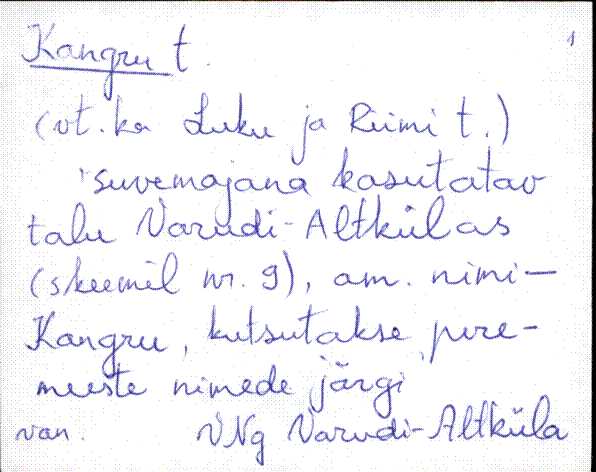 Kangru t. 1
(vt. ka Luku ja Riimi t.)
suvemajana kasutatav
talu Varudi-Altkülas
(skeemil nr. 9), am. nimi —
Kangru, kutsutakse pere-
meeste nimede järgi
van. VNg Varudi-Altküla